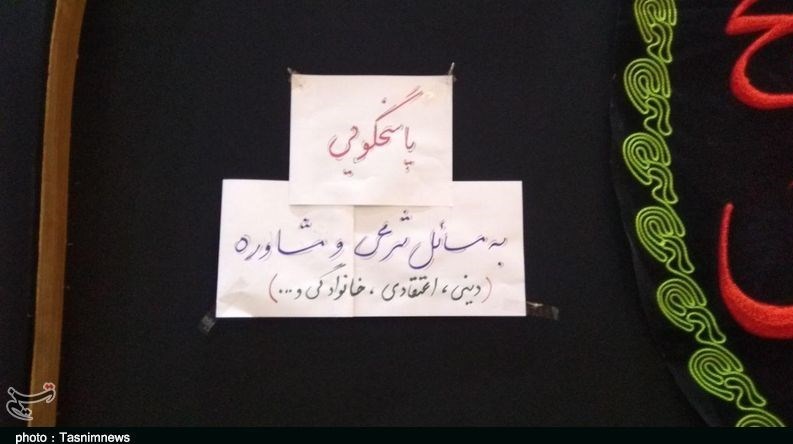 پاسخگویی
به مسائل شرعی و مشاوره
(دینی، اعتقادی، خانوادگی و...)
photo : Tasnimnews